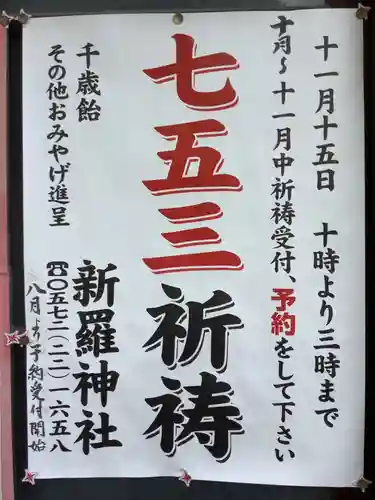 十一月十五日　十時より三時まで
十月～十一月中祈祷受付、予約をして下さい
七五三祈祷
千歳飴
その他おみやげ進呈
新羅神社
☎〇五七二（二二）一六五八
八月より予約受付開始